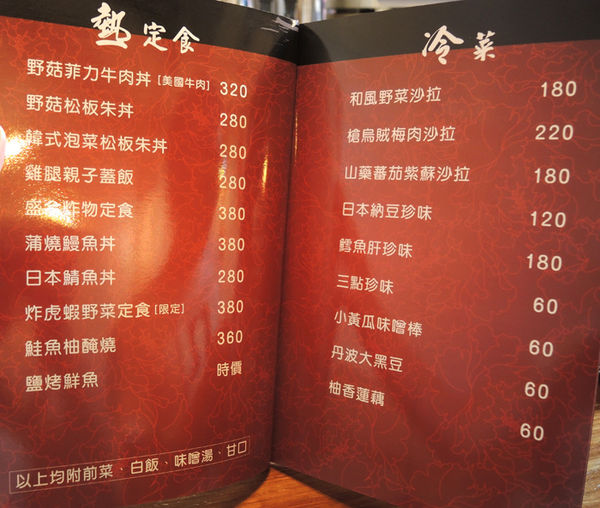 熱 定食
野菇菲力牛肉丼 [美國牛肉] 320
野菇松板朱丼 280
韓式泡菜松板朱丼 280
雞腿親子蓋飯 280
盛合炸物定食 380
蒲燒鰻魚丼 380
日本鯖魚丼 280
炸虎蝦野菜定食 [限定] 380
鮭魚柚醃燒 360
鹽烤鮮魚 時價
以上均附前菜、白飯、味噌湯、甘口
冷 菜
和風野菜沙拉 180
槍烏賊梅肉沙拉 220
山藥蕃茄紫蘇沙拉 180
日本納豆珍味 120
鱈魚肝珍味 180
三點珍味 60
小黃瓜味噌棒 60
丹波大黑豆 60
柚香蓮藕 60